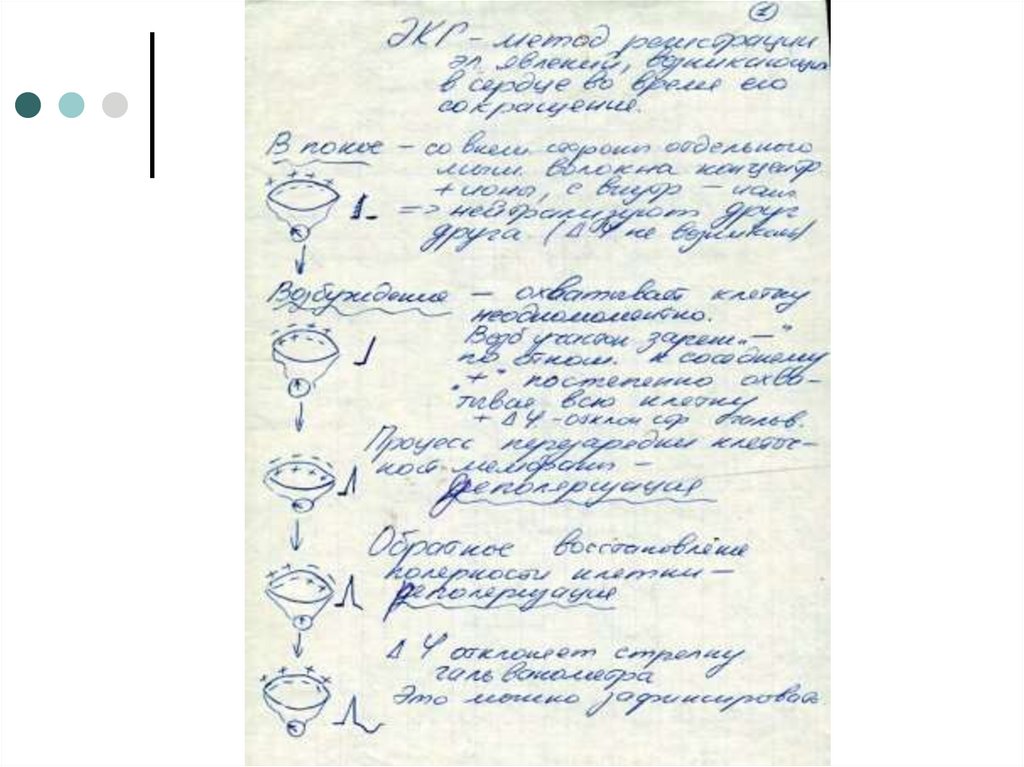 1
ЭКГ - метод регистрации
эл. явлений, возникающих
в сердце во время его
сокращения.
В покое - со внеш. стороны отдельного
мыш. волокна концентр
+ ионы, с внутр -
=> нейтрализуют друг
друга (Δφ не возникает)
Возбуждение - охватывает клетку
неодномоментно.
Возб участок заряж. "-"
по отнош. к соседнему
"+" постепенно охва-
тывая всю клетку
+ Δφ - отклон стр гальв.
Процесс перезарядки клеточ-
ной мембраны -
деполяризация
Обратное восстановление
полярности клетки -
реполяризация
Δφ отклоняет стрелку
гальванометра
Это можно зафиксировать.